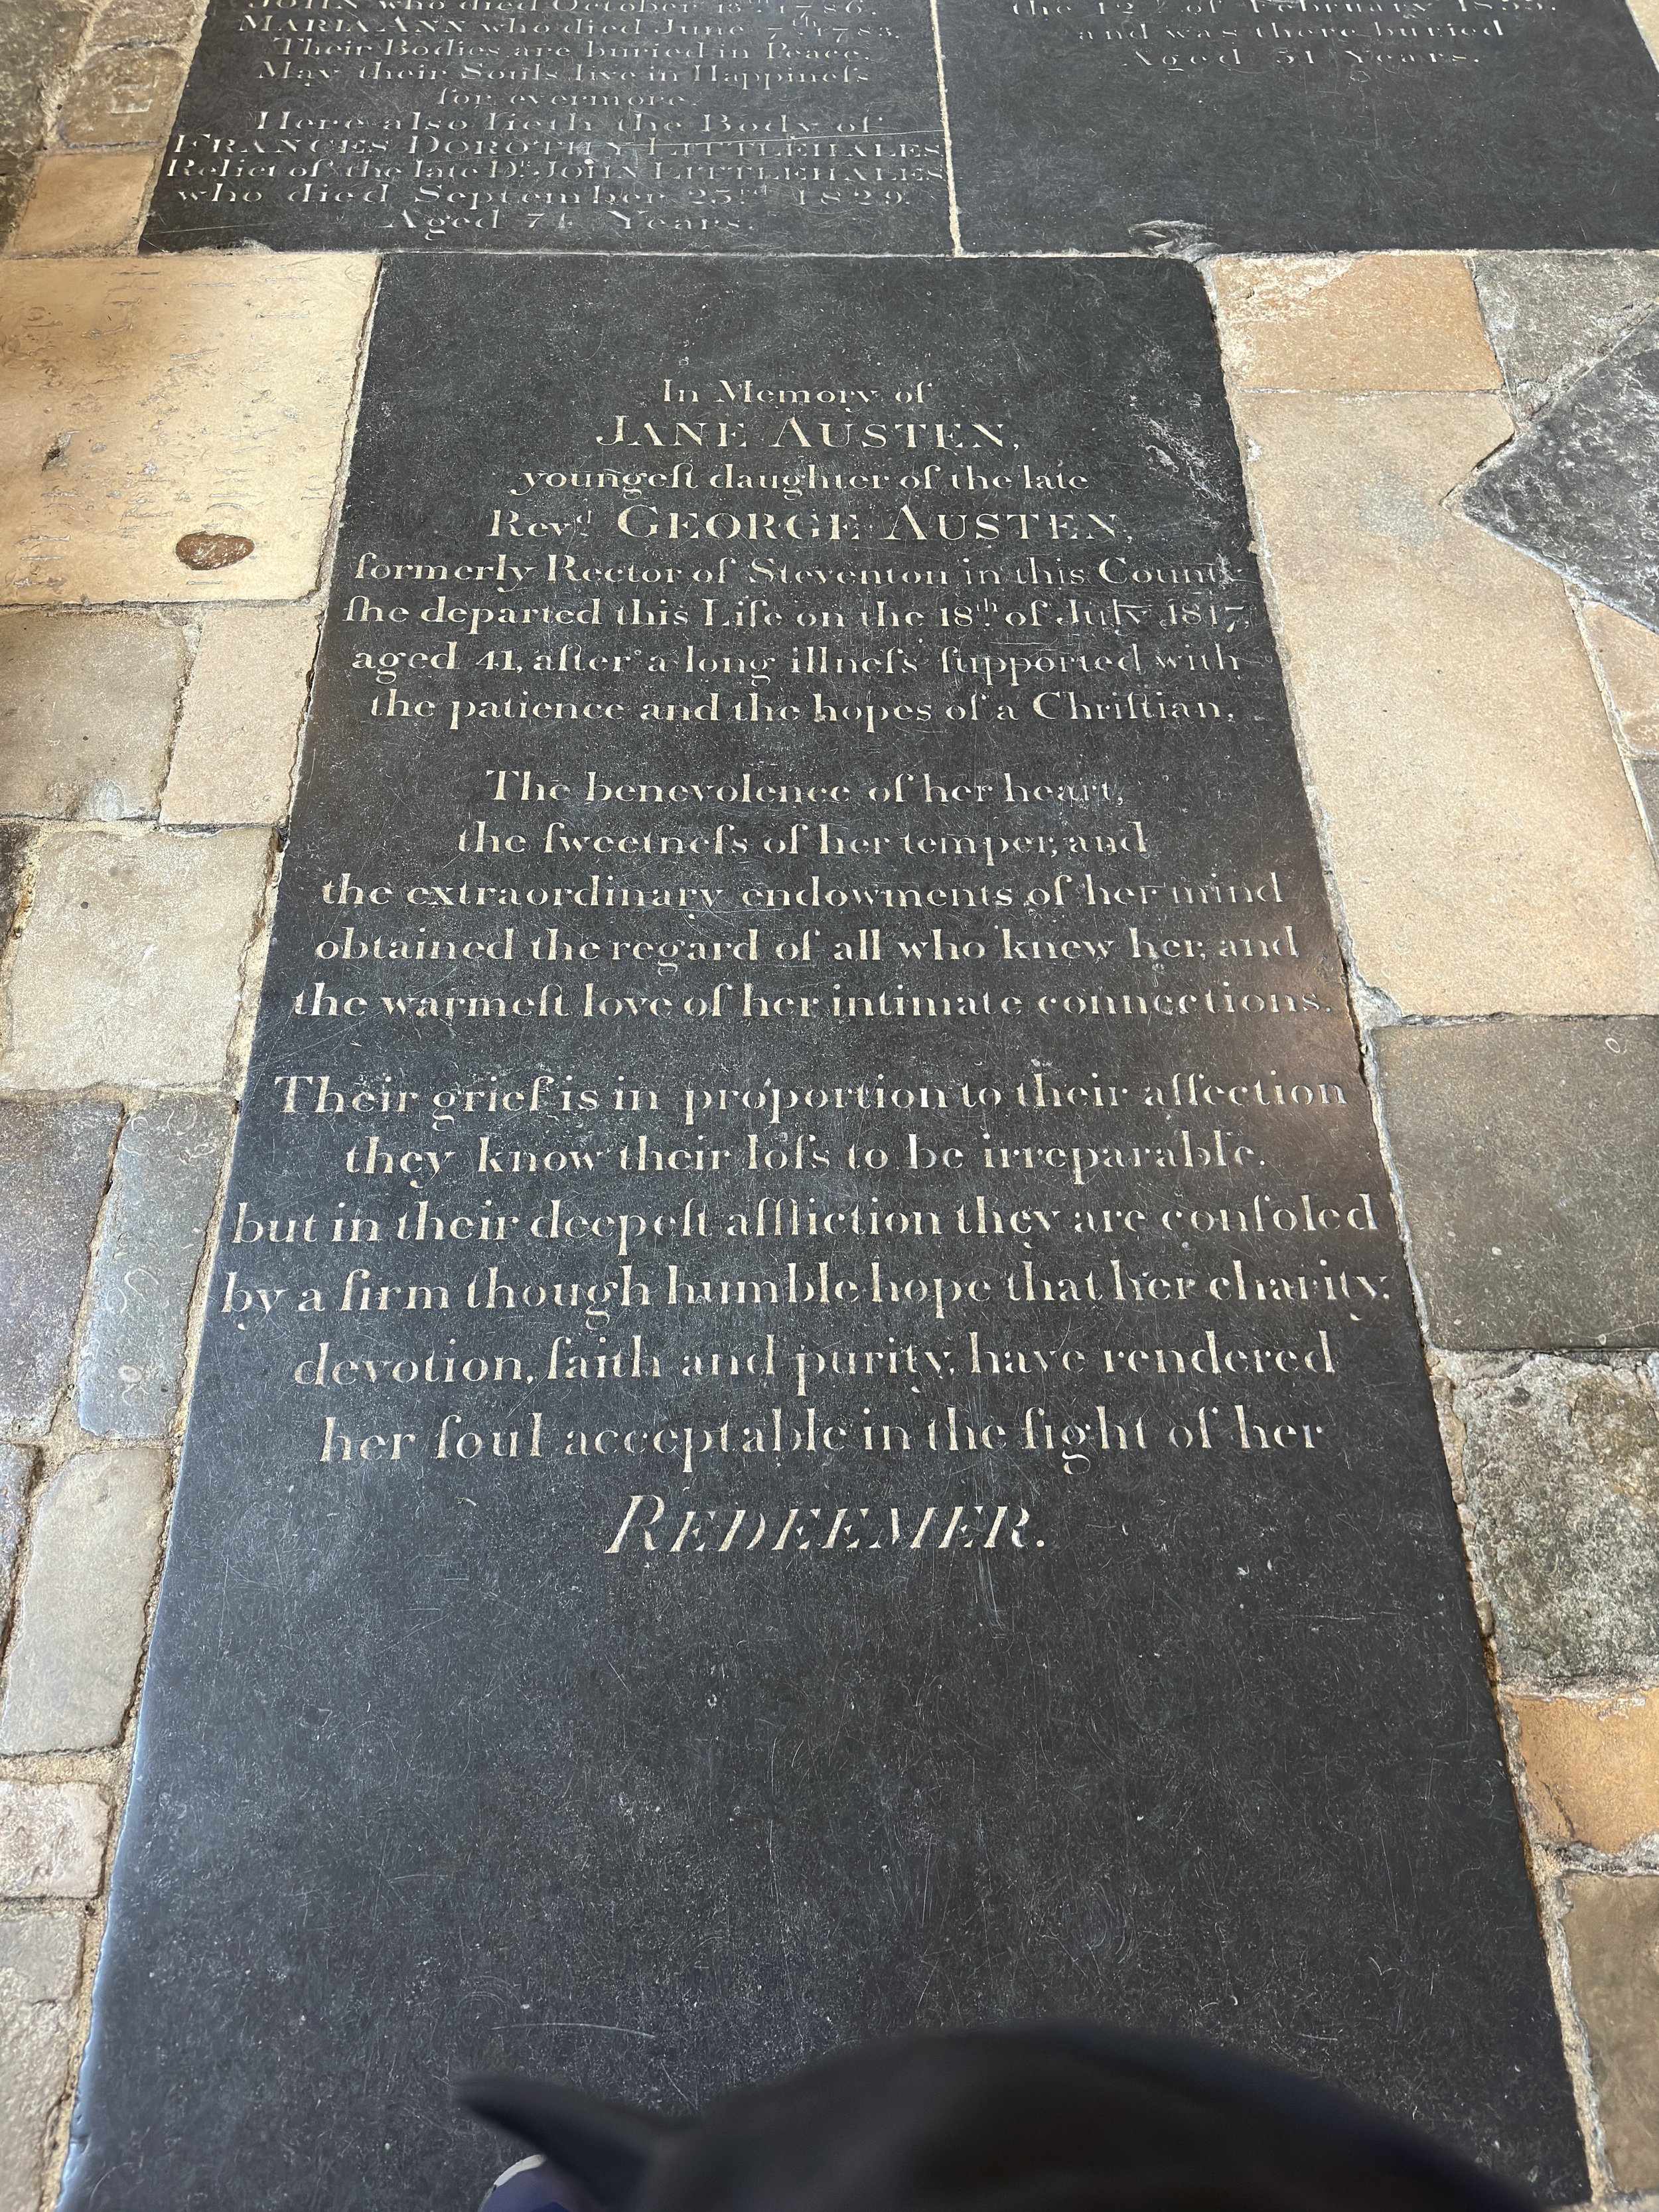 JOHN who died October 13th 1786.
MARIA ANN who died June 7th 1783.
Their Bodies are buried in Peace.
May their Souls live in Happineſs
for evermore.
Here also lieth the Body of
FRANCES DOROTHY LITTLEHALES
Relict of the late Dr. JOHN LITTLEHALES
who died September 23rd 1829.
Aged 74 Years.
of February
and was there buried
Aged 51 Years.
In Memory of
JANE AUSTEN,
youngeſt daughter of the late
Revd. GEORGE AUSTEN,
formerly Rector of Steventon in this County
ſhe departed this Life on the 18th. of July 1817,
aged 41, after a long illneſs ſupported with
the patience and the hopes of a Chriſtian,
The benevolence of her heart,
the ſweetneſs of her temper, and
the extraordinary endowments of her mind
obtained the regard of all who knew her, and
the warmeſt love of her intimate connections.
Their grief is in proportion to their affection
they know their loſs to be irreparable,
but in their deepeſt affliction they are conſoled
by a firm though humble hope that her charity,
devotion, faith and purity, have rendered
her ſoul acceptable in the ſight of her
REDEEMER.